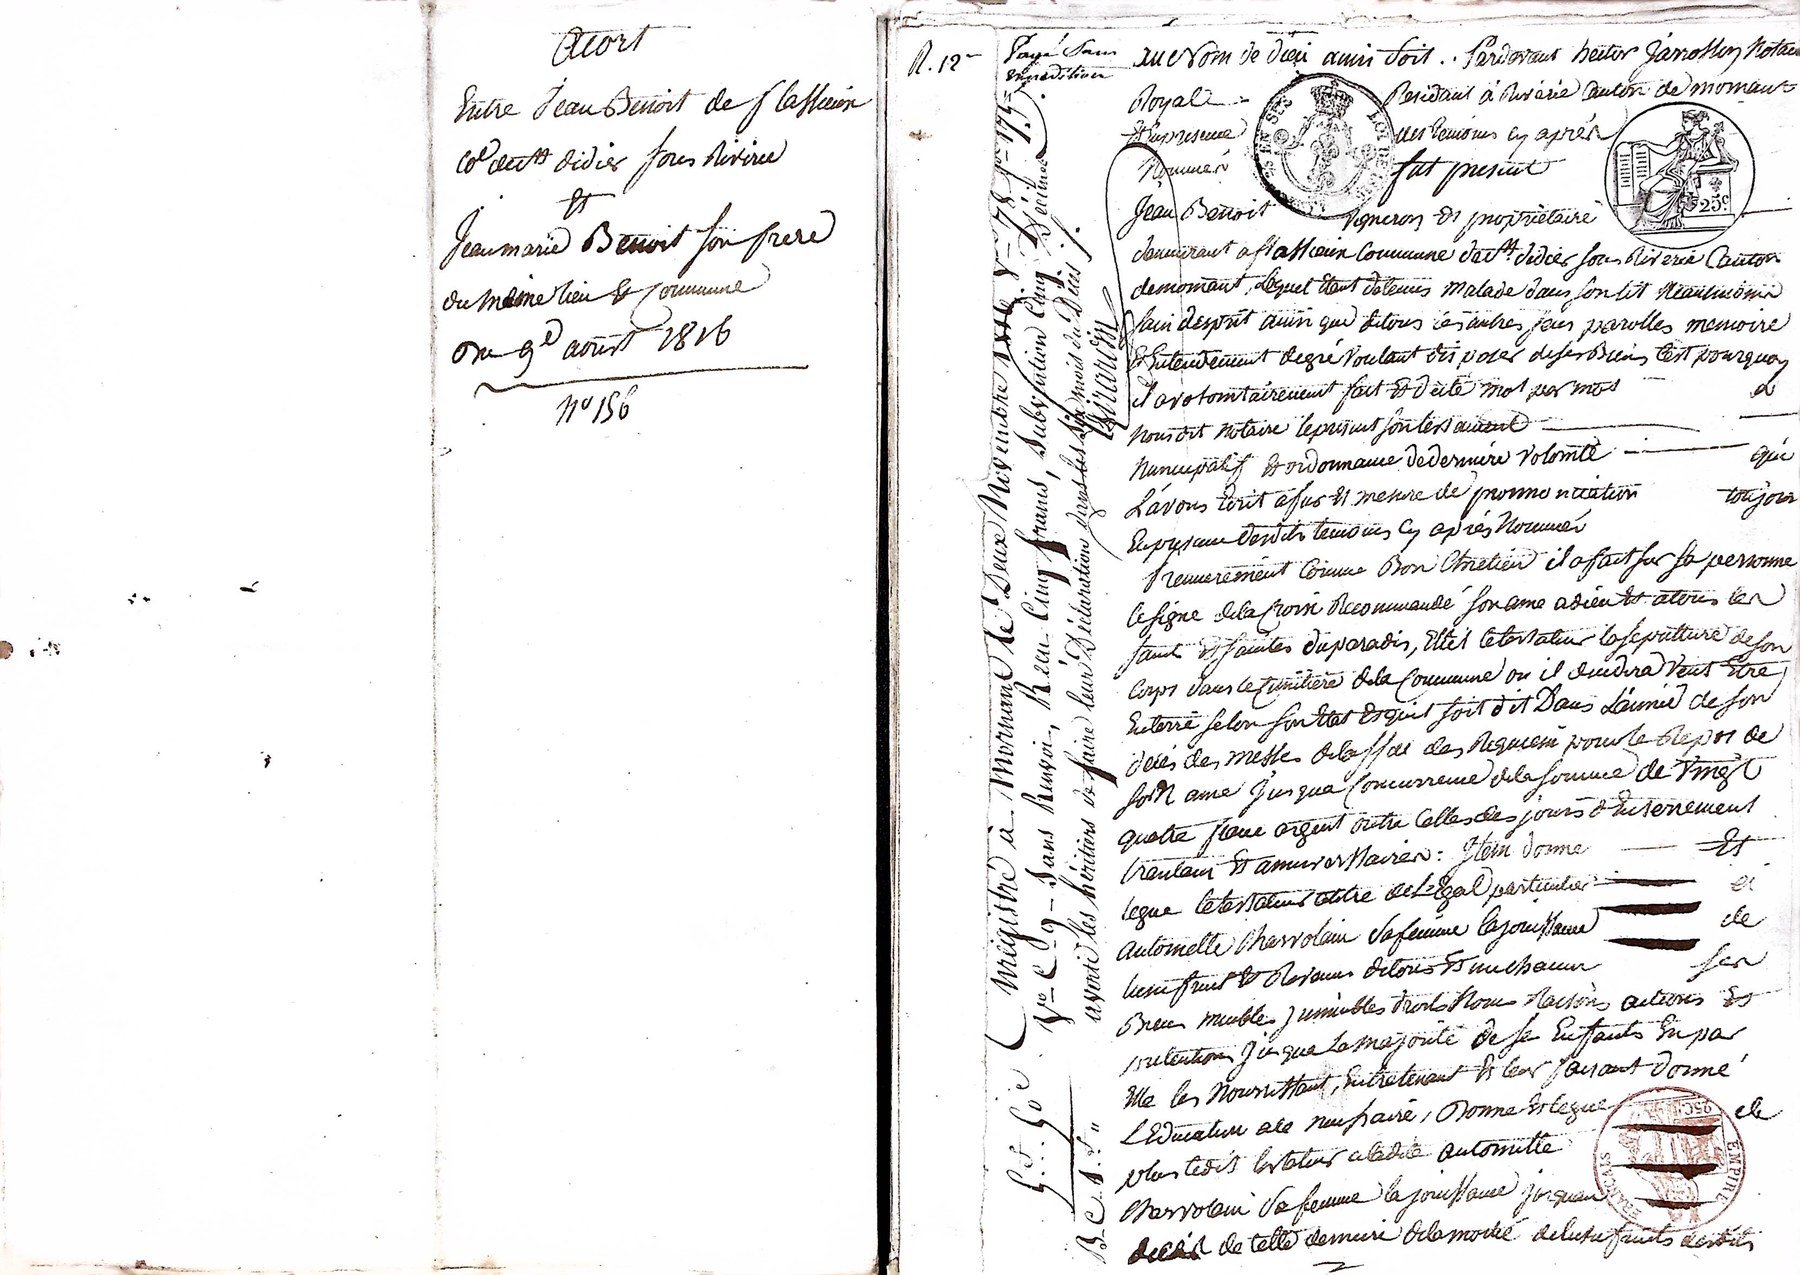 Acort
Entre Jean Benoit de
Cne de St didier sous Riverie
Et
Jeanmarie Benoit son frere
du méme lieu Et Commune
Du 9e aoust 1816
No 156
R. 12
Payé Sans
expedition
au Nom de dieu ainsi soit .. Pardevant hector Notaire
Royal Residant á Riverie Canton de mornant
Et En presence des temoins cy aprés
Nommés fut present
Jean Benoit vigneron Et proprietaire
demeurant a Commune de St didier sous Riverie Canton
de mornant, Lequel Etant détenus malade dans son lit Neaulmoins
sain desprit ainsi que de tous ces autres sens parolles memoire
Et Entendement de gré voulant disposer de ses Biens C'est pourquoy
il a volontairement fait Et dicté mot par mot a
Nous dit notaire le present son testament
Nuncupatif Et ordonnance de derniére volonté qué
L'avons Ecrit a fur Et mesure de prononciation toujour
En presence desdits temoins Cy aprés Nommés
Premierément Comme Bon Chretien il a fait sur sa personne
le signe de la Croix Recommandé son ame a dieu Et a tous les
saint Et saintes du paradis, Elit le testateur la sepulture de son
Corps dans le Cimitiére de la Commune ou il decedera veut Etre
Enterré selon son Etat Et quil soit dit Dans L'année de son
décés des messes de Requiem pour le Repos de
son ame Jusqua Concurrence de la somme de Vingt
quatre franc argent outre Celles des jours d'Enterrement
trentain Et anniversaires : Item donne Et
legue le testateur a titre de Légat particulier a
antoinette Charvolain sa femme la jouissance de
Lusufruit Et Revenus de tous Et un chacun ses
Biens meubles Immeubles droits Noms Raisons actions Et
pretentions Jusqua la majorité de ses Enfants En par
Elle les Nourrissant, Entretenant Et leur faisant donné
L'Education Donne Et legue de
plus ledit testateur a ladite antoinette
Charvolain sa femme la jouissance jusquau
décés de cette derniere de la moitié de lusufruits desdits
Enregistré à Mornant le Deux Novembre 1816
Vo C. 9 - sans Renvoi, Reçu Cinq francs, subvention Cinq Décimes.
averti les héritiers de faire leur Déclaration dans les six mois du Décés.
Girardin
25c
EMPIRE
FRANÇAIS
25C